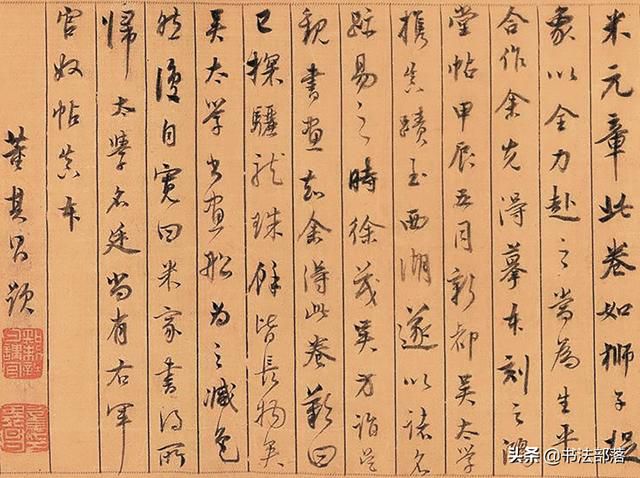 米元章此卷如狮子捉
象以全力赴之当为生平
合作余先得摹本刻之鸿
堂帖甲辰五月新都吴太学
携真蹟至西湖遂以诸名
跡易之時徐茂吴方诣吴
観書畫知余得此卷歎曰
已探驪龍珠餘皆長物矣
吴太学書畫船为之减色
然復自寛曰米家書得所
歸太學名廷尚有右軍
官奴帖真本
董其昌題
头条 @书法部落